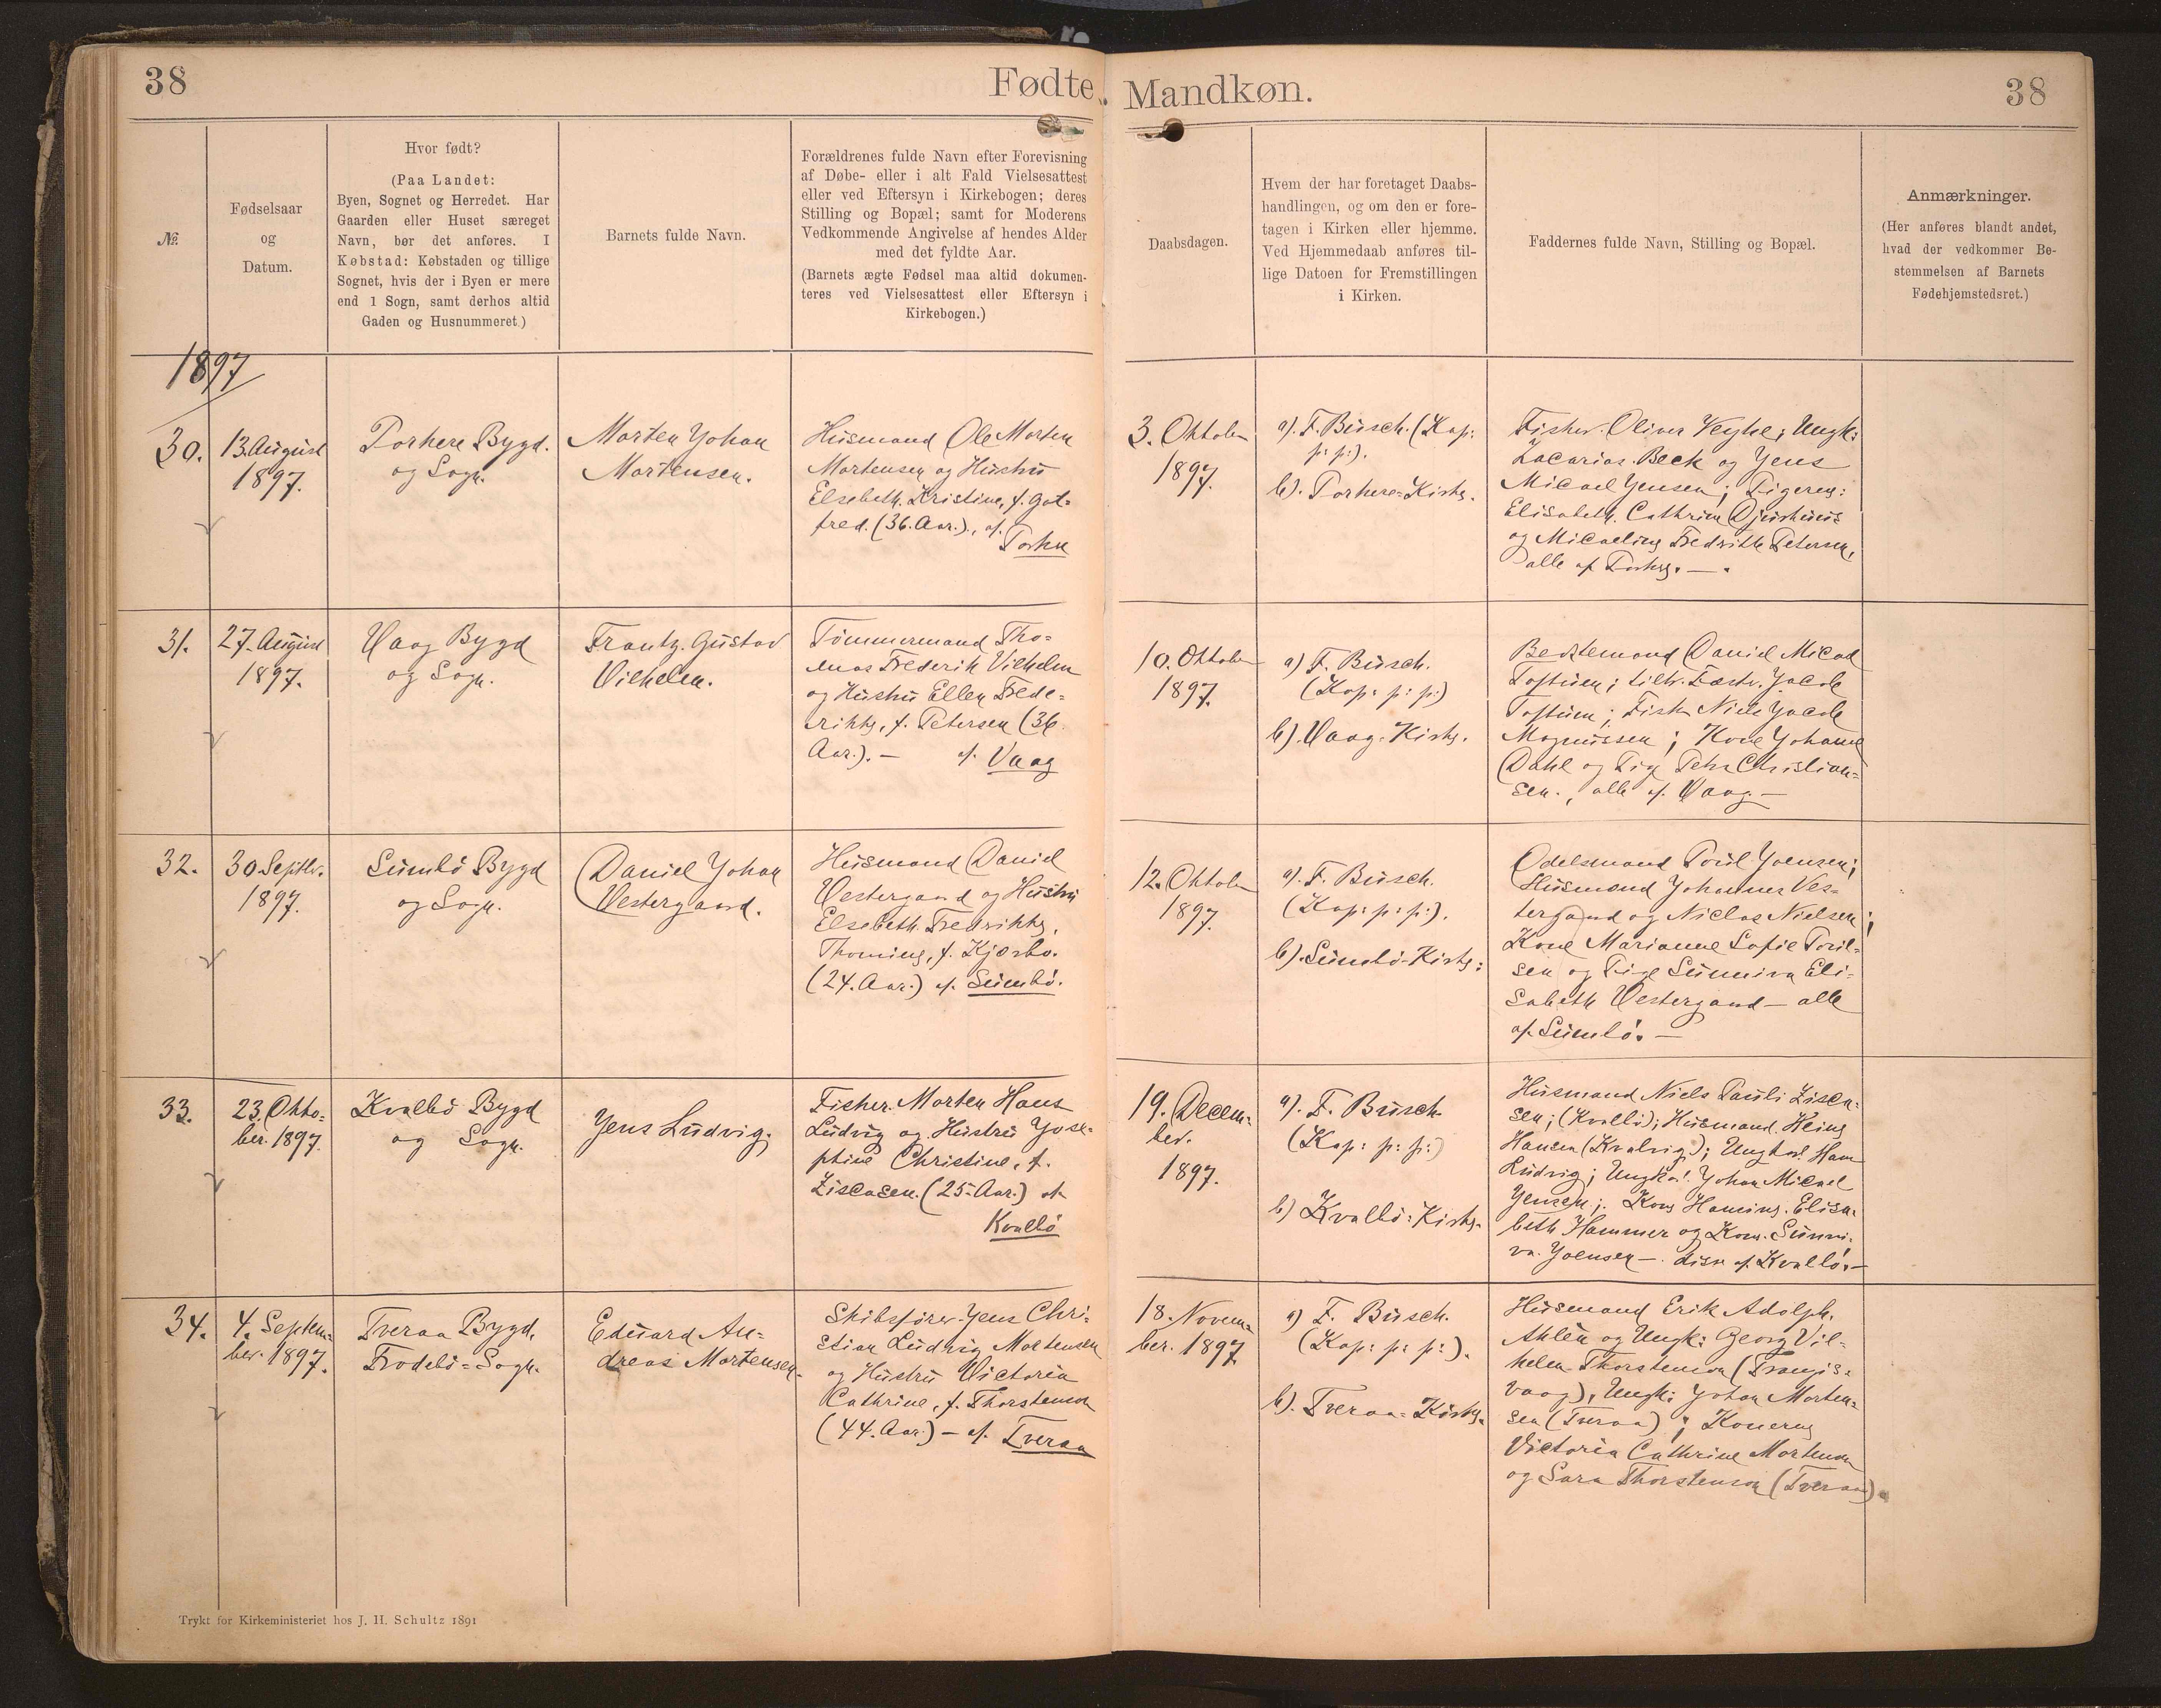 38
Fødte, Mandkøn.
38
№
Fødselsaar
og
Datum.
Hvor født?
(Paa Landet:
Byen, Sognet og Herredet. Har
Gaarden eller Huset særeget
Navn, bør det anføres. I
Købstad: Købstaden og tillige
Sognet, hvis der i Byen er mere
end 1 Sogn, samt derhos altid
Gaden og Husnummeret.)
Barnets fulde Navn.
Forældrenes fulde Navn efter Forevisning
af Døbe- eller i alt Fald Vielsesattest
eller ved Eftersyn i Kirkebogen; deres
Stilling og Bopæl; samt for Moderens
Vedkommende Angivelse af hendes Alder
med det fyldte Aar.
(Barnets ægte Fødsel maa altid dokumen-
teres ved Vielsesattest eller Eftersyn i
Kirkebogen.)
Daabsdagen.
Hvem der har foretaget Daabs-
handlingen, og om den er fore-
tagen i Kirken eller hjemme.
Ved Hjemmedaab anføres til-
lige Datoen for Fremstillingen
i Kirken.
Faddernes fulde Navn, Stilling og Bopæl.
Anmærkninger.
(Her anføres blandt andet,
hvad der vedkommer Be-
stemmelsen af Barnets
Fødehjemstedsret.)
1897
30.
13. August
1897.
Porkere Bygd.
og Sogn.
Morten Johan
Mortensen.
Husmand Ole Morten
Mortensen og Hustru
Elsebeth Kristine, f. Got-
fred. (36. Aar.), af.
Porkere
3. Oktober
1897.
a). F. Busch. (Kap:
p: p:).
b). Porkere-Kirke.
Fisker Oliver Veyhe; Ungk:
Zacarias Beck og Jens
Micael Jensen; Pigerne:
Elisabeth Cathrine Djurhuus
og Micaeline Fredrikke Petersen,
alle af Porkere.—.
31.
27. August
1897.
Vaag Bygd
og Sogn.
Frantz Gustav
Vilhelm.
Tömmermand Tho-
mas Frederik Vilhelm
og Hustru Ellen Frede-
rikke, f. Petersen (36
Aar.).— af. Vaag
10. Oktober
1897.
a) F. Busch.
(Kap: p: p:)
b). Vaag-Kirke.
Bestemand Daniel Micael
Toftum; Jacob
Toftum; Fisker Niels Jacob
Magnussen; Kone Johanne
Dahl og Pige Petra Christian-
sen., alle af. Vaag.—
32.
30. Septbr.
1897.
Sumbö Bygd
og Sogn.
Daniel Johan
Vestergaard.
Husmand Daniel
Vestergaard og Hustru
Elsebeth Fredrikke
Thomine, f. Kjærbo.
(24. Aar.) af. Sumbö.
12. Oktober
1897.
a). F. Busch.
(Kap: p: p:).
b). Sumbö-Kirke:
Odelsmand Poul Joensen;
Husmand Johannes Ves-
tergaard og Niclas Nielsen;
Kone Marianne Sofie Poul-
sen og Pige Sunniva Eli-
sabeth Vestergaard — alle
af Sumbö.—
33.
23. Okto-
ber. 1897.
Kvalbö Bygd
og Sogn.
Jens Ludvig.
Fisker Morten Hans
Ludvig og Hustru Jose-
phine Christine, f.
Ziscasen. (25. Aar.) af
Kvalbö
19. Decem-
ber.
1897.
a). F. Busch
(Kap: p: p:)
b) Kvalbö-Kirke.
Husmand Niels Pauli Zisca-
sen; (Kvalbö); Husmand Heine
Hansen (Kvalvig); Ungkarl Hans
Ludvig; Ungkarl Johan Micael
Jensen; Kone Hansine Elisa-
beth Hammer og Kone Sunni-
va Joensen — disse af Kvalbö.—
34.
4. Septem-
ber. 1897.
Tveraa Bygd,
Frodebö-Sogn.
Eduard An-
dreas Mortensen.
Skibsfører Jens Chri-
stian Ludvig Mortensen
og Hustru Victoria
Cathrine, f. Thorstenson
(44. Aar.) — af. Tveraa
18. Novem-
ber. 1897
a) F. Busch.
(Kap: p: p:).
b). Tveraa-Kirke.
Husmand Erik Adolph
og Ungk: Georg Vil-
helm Thorstenson (Trangis-
vaag), Ungk: Johan Morten-
sen (Tveraa); Konerne
Victoria Cathrine Mortensen
og Sara Thorstenson (Tveraa).
Trykt for Kirkeministeriet hos J. H. Schultz 1891